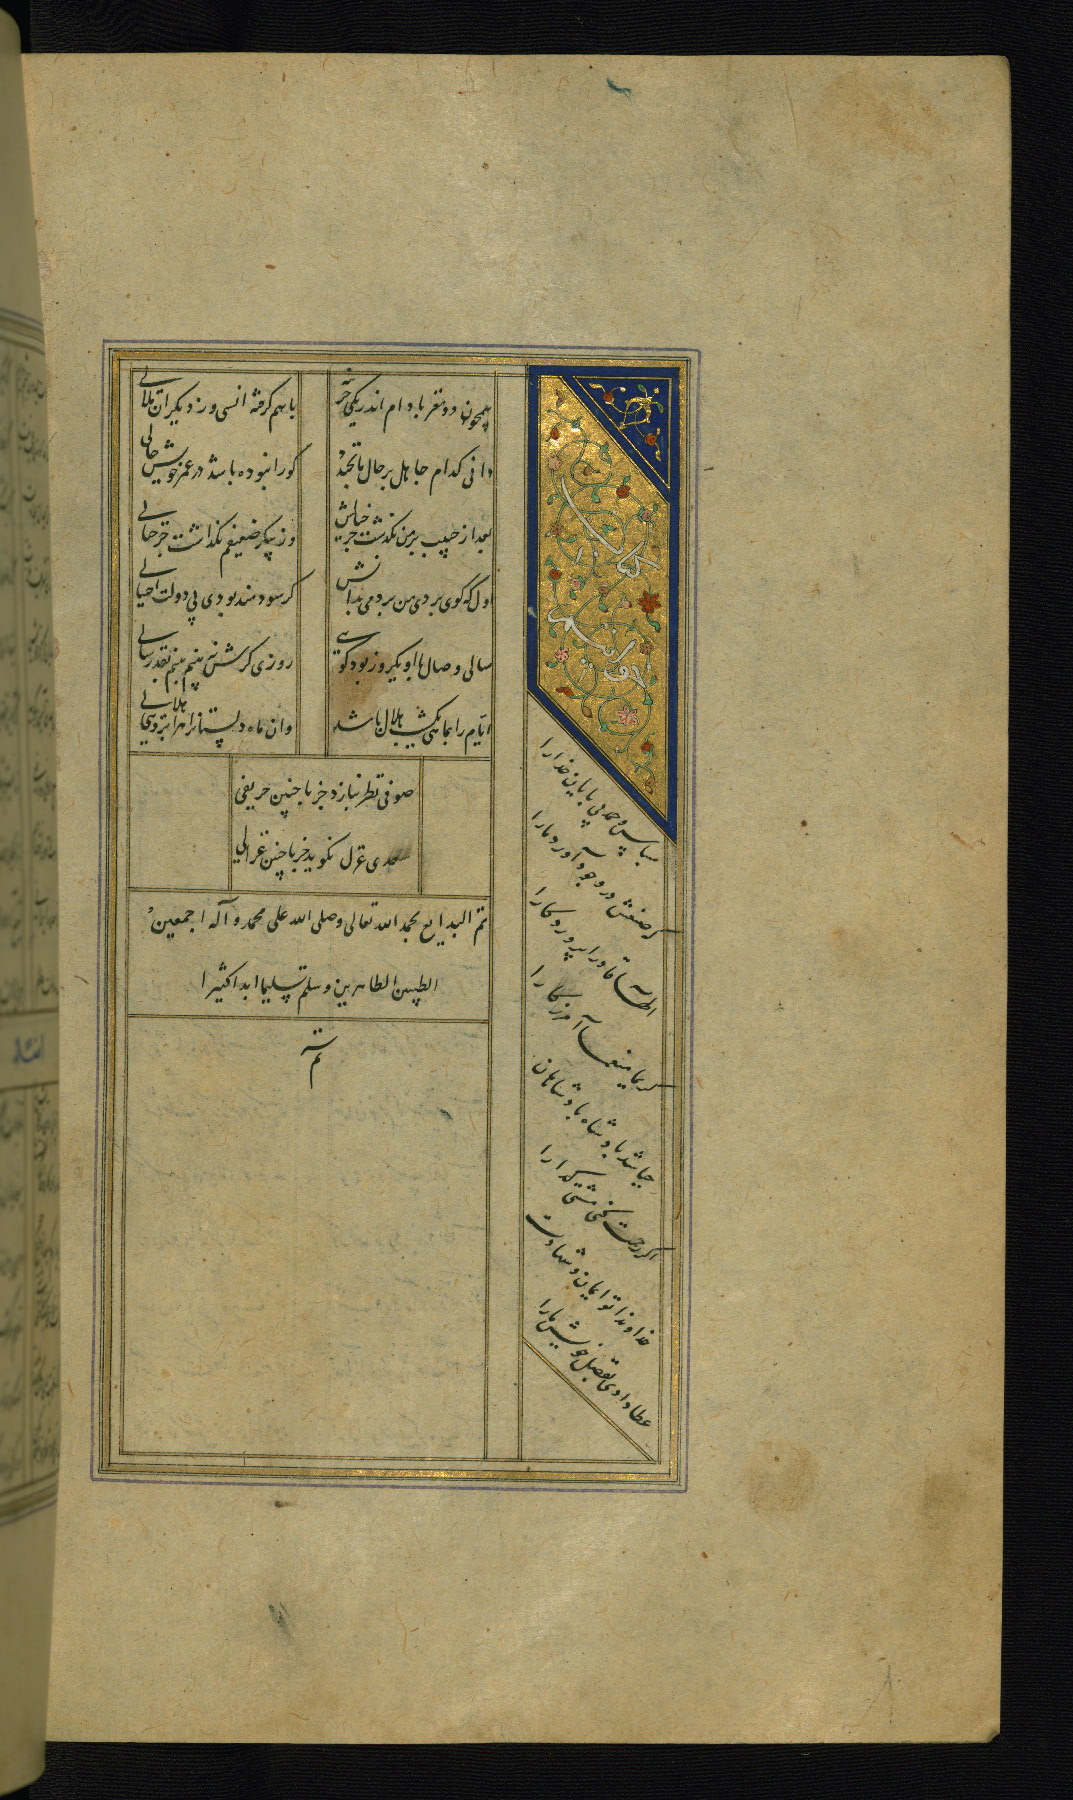 همچون دو مغز بادام اندر یکی خزینه
با هم گرفته انسی وز دیگران ملالی
دانی کدام جاهل بر حال ما بخندد
کورا نبوده باشد در عمر خویش حالی
بعد از حبیب بر من نگذشت جز خیالش
وز پیکر ضعیفم نگذاشت جز خیالی
اول که گوی بردی من بردمی بدانش
گر سودمند بودی بی دولت احتیالی
سالی وصال با او یکروز بود گویی
روزی کزش نبینم بینم بقدر سالی
ایام را بماهی یکشب هلال باشد
وان ماه دلستانرا هر ابرویی هلالی
صوفی نظر نبازد جز با چنین حریفی
سعدی غزل نگوید جز با چنین غزالی
تم البدایع بحمد الله تعالی وصلی الله علی محمد و آله اجمعین
الطیبین الطاهرین وسلم تسلیما ابدا کثیرا
تمه
کتاب
خواتیم
سپاس و حمد بی پایان خدا را
که صنعش در وجود آورد ما را
الها قادرا پروردگارا
کریما منعما آمرزگارا
چه باشد پادشاه پادشاهان
اگر رحمت کنی مشتی گدا را
خداوندا تو ایمان و شهادت
عطا دادی بفضل خویش ما را